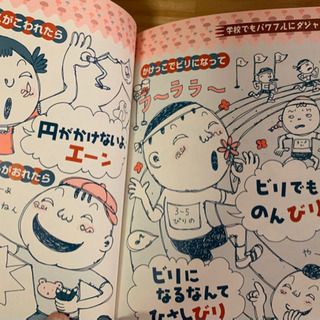 学校でもパワフルにダジャ
かけっこでビリになって
ラ〜ララ〜
3-5
びりの
ビリでも
のんびり
ビリに
なるなんて
ひさしびり
がこわれたら
円がかけないよ
エーン
がおれたら